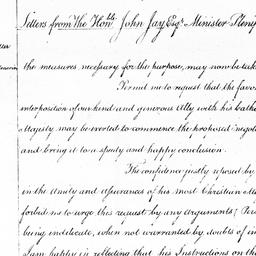 Letters from The Honble. John Jay Esqr. Minister Plenip
the measures necessary for the purpose, may now be take
Permit me to request that the favo
interposition of our kind and generous Ally with his Catho
Majesty may be exerted to commence the proposed negoti
and bring it to a speedy and happy conclusion.
The confidence justly reposed by
in the Amity and Assurances of his most Christian Ma
forbid me to urge this request by any Arguments; Per
being indelicate, when not warranted by doubts of in
I am happy in reflecting that his Instructions on th